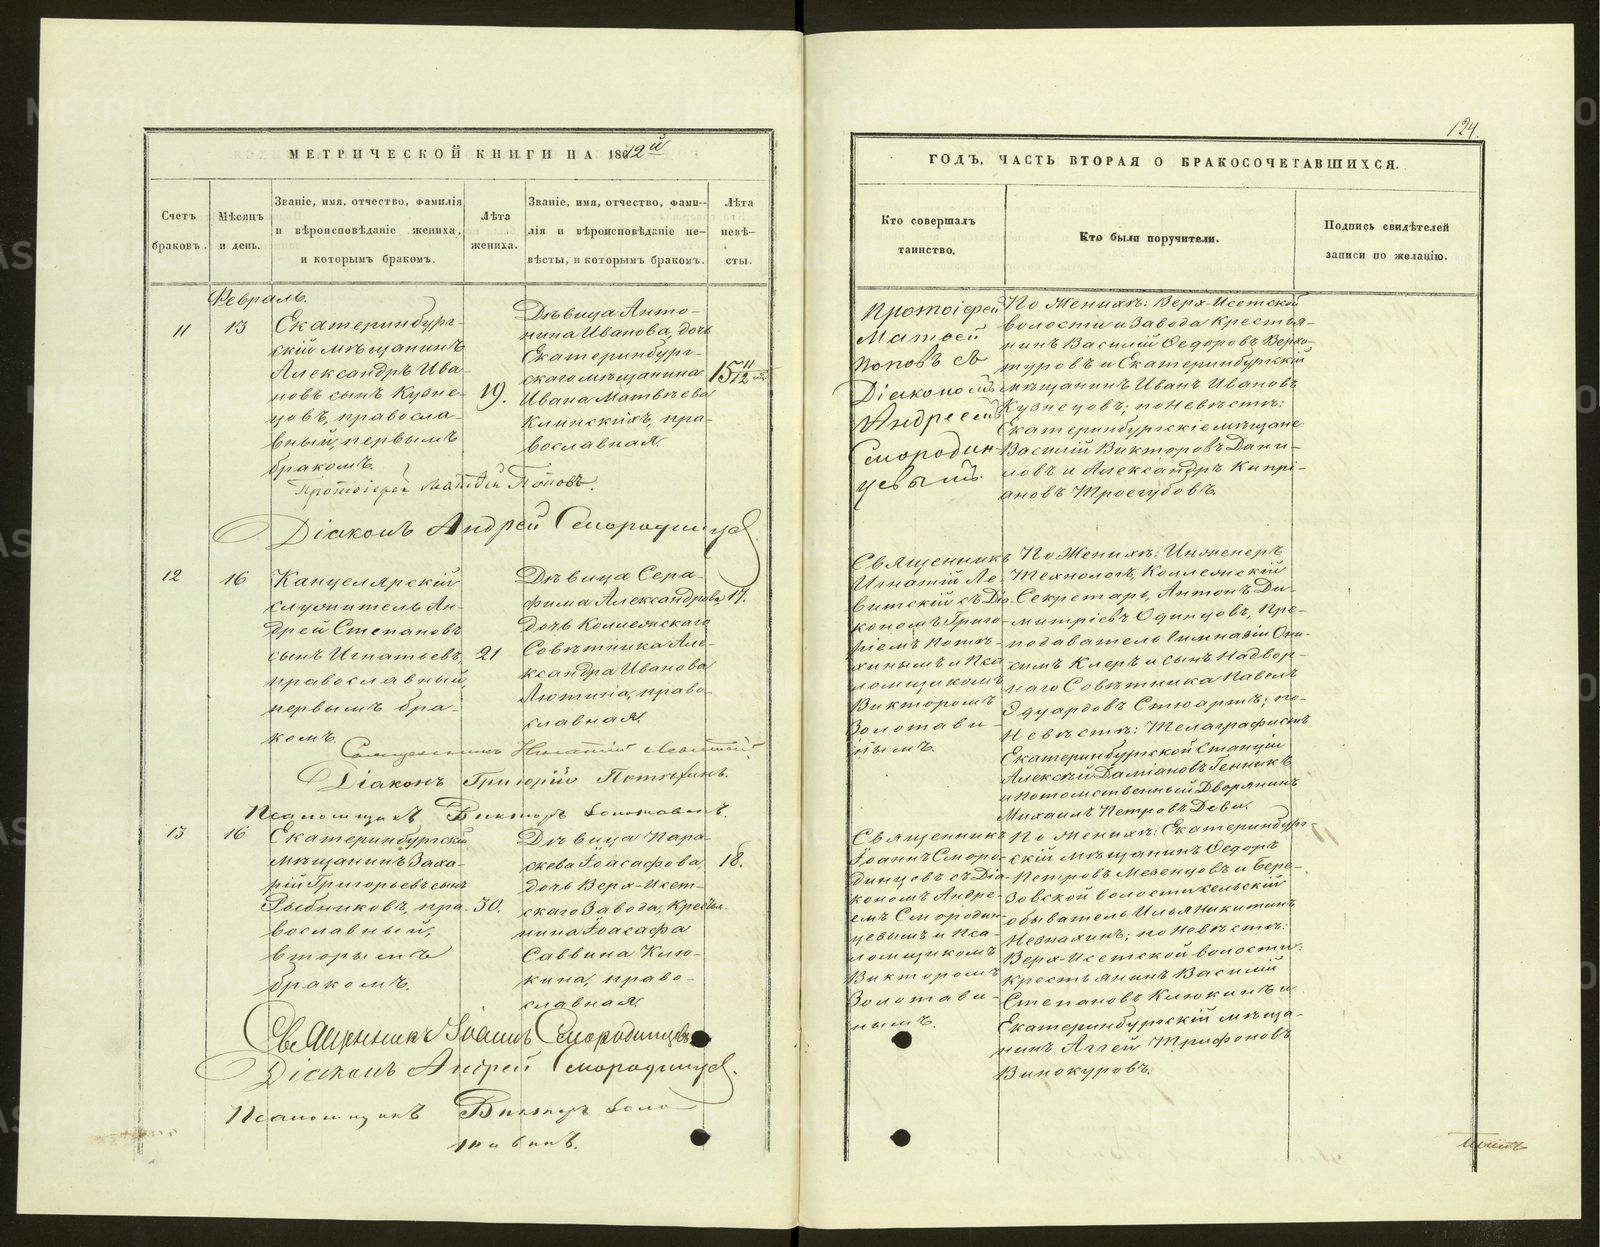 124.
МЕТРИЧЕСКОЙ КНИГИ НА 1872й
Счетъ браковъ.
Мѣсяцъ и день.
Званіе, имя, отчество, фамилія
и вѣроисповѣданіе жениха,
и которымъ бракомъ.
Лѣта
жениха.
Званіе, имя, отчество, фами-
лія и вѣроисповѣданіе не-
вѣсты, и которымъ бракомъ.
Лѣта
невѣ-
сты.
Февраль.
11
13
Екатеринбург-
скій мѣщанинъ
Александръ Ива-
новъ сынъ Кузне-
цовъ, правосла-
вный, первымъ
бракомъ.
19.
Дѣвица Анто-
нина Иванова, дочь
Екатеринбург-
скаго мѣщанина
Ивана Матвѣева
Клинскихъ, пра-
вославная.
15 11/12
Протоіерей Матвѣй Поповъ.
Діаконъ Андрей Смородинцев
12
16
Канцелярскій
служитель Ан-
дрей Степановъ
сынъ Игнатьевъ,
православный,
первымъ бра-
комъ.
21
Дѣвица Сера-
фима Александрова
дочь Коллежскаго
Совѣтника Але-
ксандра Иванова
Лютина, право-
славная.
17.
Священникъ Игнатій Левитскій
Діаконъ Григорій Потѣхинъ.
Псаломщикъ Викторъ Золотавинъ.
13
16
Екатеринбургскій
мѣщанинъ Заха-
рій Григорьевъ сынъ
Рыбниковъ, пра-
вославный,
вторымъ
бракомъ.
30.
Дѣвица Пара-
скева Іоасафова,
дочь Верх-Исет-
скаго Завода, Крестья-
нина Іоасафа
Саввина Клю-
кина, право-
славная.
18.
Священникъ Іоаннъ Смородинцевъ
Діаконъ Андрей Смородинцев.
Псаломщикъ Викторъ Золо
тавинъ.
ГОДЪ, ЧАСТЬ ВТОРАЯ О БРАКОСОЧЕТАВШИХСЯ.
Кто совершалъ
таинство.
Кто были поручители.
Подпись свидѣтелей
записи по желанію.
Протоіерей
Матѳей
Поповъ съ
Діакономъ
Андреемъ
Смородин-
цевымъ.
По Женихѣ: Верх-Исетской
волости и Завода крестья-
нинъ Василій Ѳедоровъ Верхо-
туровъ и Екатеринбургскій
мѣщанинъ Иванъ Ивановъ
Кузнецовъ; по Невѣстѣ:
Екатеринбургскіе мѣщане
Василій Викторовъ Дани-
ловъ и Александръ Кипрі-
ановъ Троегубовъ.
Священникъ
Игнатій Ле-
витскій съ Діа-
кономъ Григо-
ріемъ Потѣ-
хинымъ и Пса-
ломщикомъ
Викторомъ
Золотави-
нымъ.
По Женихѣ: Инженеръ
Технологъ, Коллежскій
Секретарь, Антонъ Ди-
митріевъ Одинцовъ, Пре-
подаватель Гимназіи Они-
симъ Клеръ и сынъ Надвор-
наго Совѣтника Павелъ
Эдуардовъ Стюартъ; по-
Невѣстѣ: Телаграфистъ
Екатеринбургской Станціи
Алексѣй Даміановъ
и потомственный Дворянинъ
Михаилъ Петровъ Деви.
Священникъ
Іоаннъ Сморо-
динцовъ съ Діа-
кономъ Андре-
емъ Смородин-
цевымъ и Пса-
ломщикомъ
Викторомъ
Золотави-
нымъ.
По Женихѣ: Екатеринбург-
скій мѣщанинъ Ѳедоръ
Петровъ Мезенцовъ и Бере-
зовской волости сельскій
обыватель Илья Никитинъ
по Невѣстѣ:
Верх-Исетской волости:
крестьянинъ Василій
Степановъ Клюкинъ и
Екатеринбургскій мѣща-
нинъ Аггей Трифоновъ
Винокуровъ.